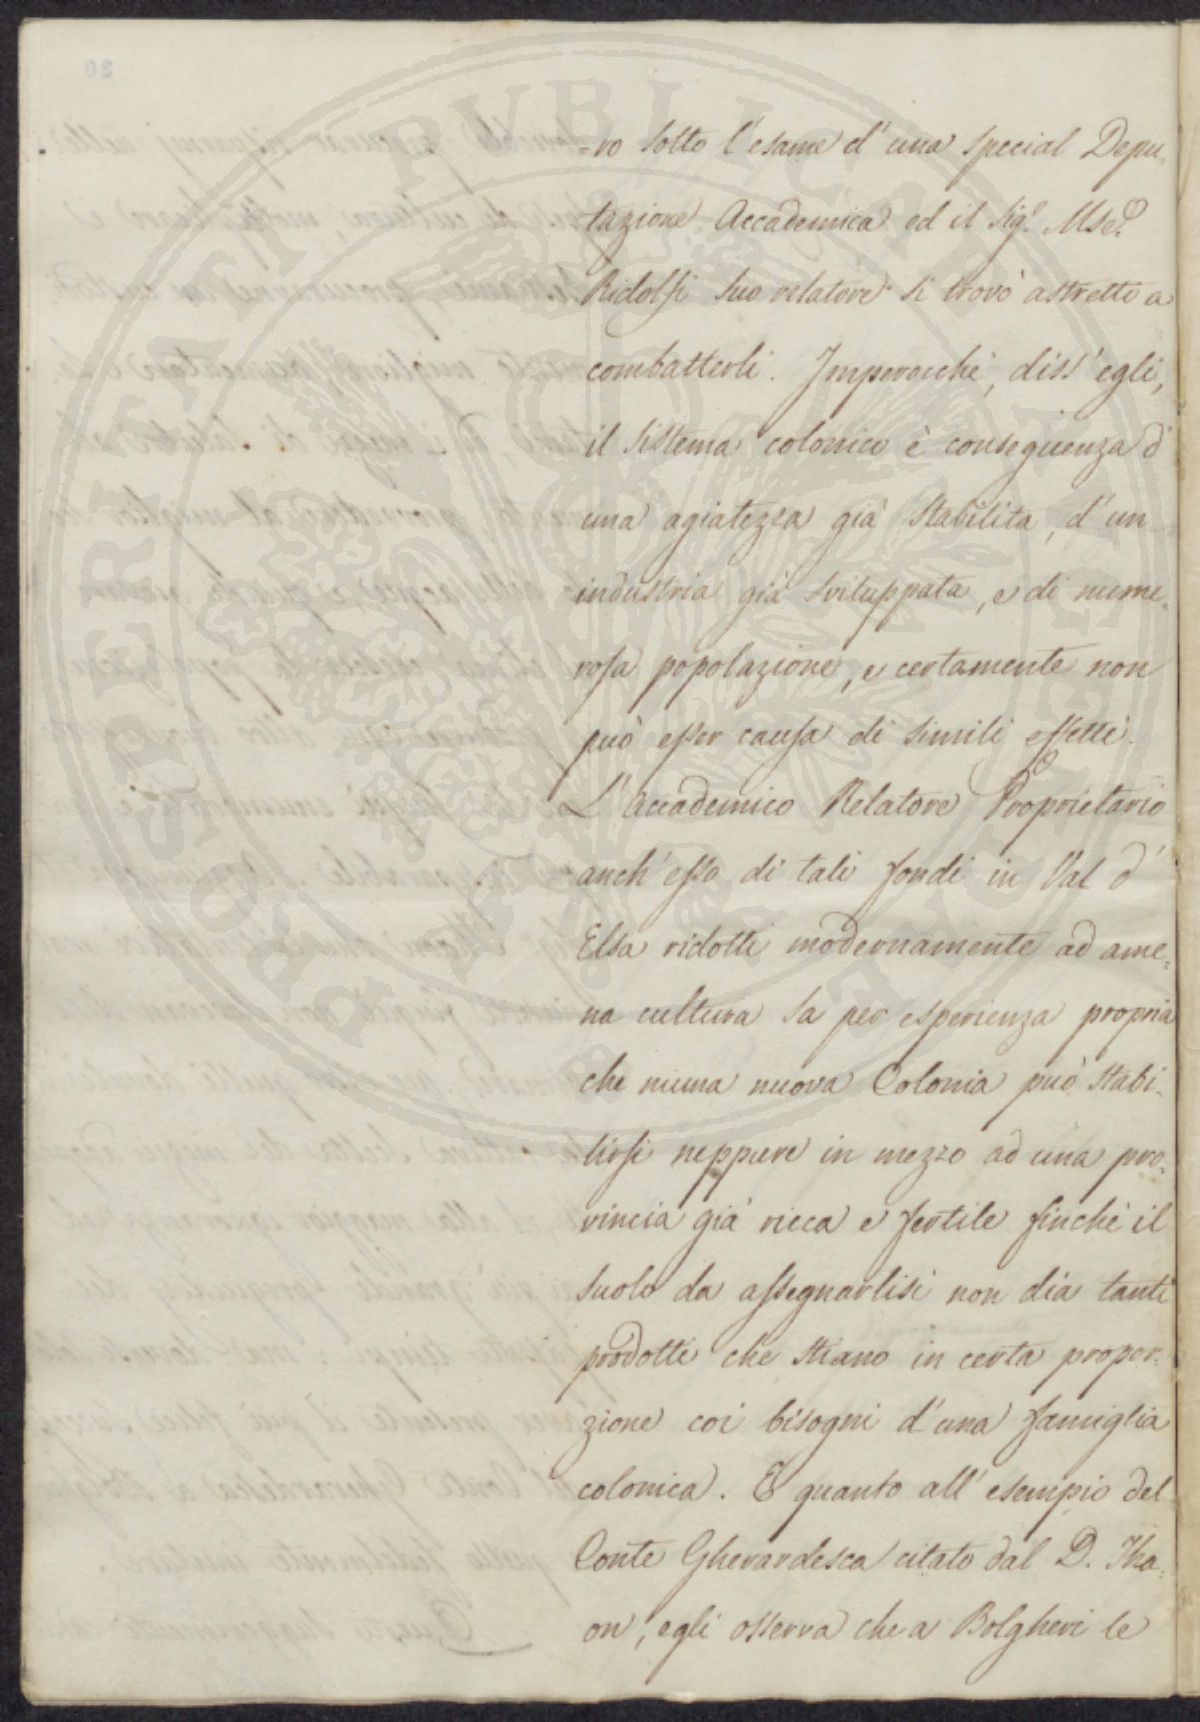 =ro sotto l'esame d'una special Depu=
tazione Accademica ed il Sig.e Mse.
Ridolfi suo relatore si trovò astretto a
combatterli. Imperocchè, diss'egli,
il sistema colonico è conseguenza d'
una agiatezza già stabilita, d'un
industria già sviluppata, e di nume=
rosa popolazione, e certamente non
può esser causa di simili effetti.
L'Accademico Relatore Proprietario
anch'esso di tali fondi in Val d'
Elsa ridotti modernamente ad ame=
na cultura sa per esperienza propria
che niuna nuova Colonia può stabi=
lirsi neppure in mezzo ad una pro=
vincia già ricca e fertile finchè il
suolo da assegnarlisi non dia tanti
prodotti che stiano in certa propor=
zione coi bisogni d'una famiglia
colonica. E quanto all'esempio del
Conte Gherardesca citato dal D. Tha=
on, egli osserva che a Bolgheri le
PROSPERITATI PVBLICAE